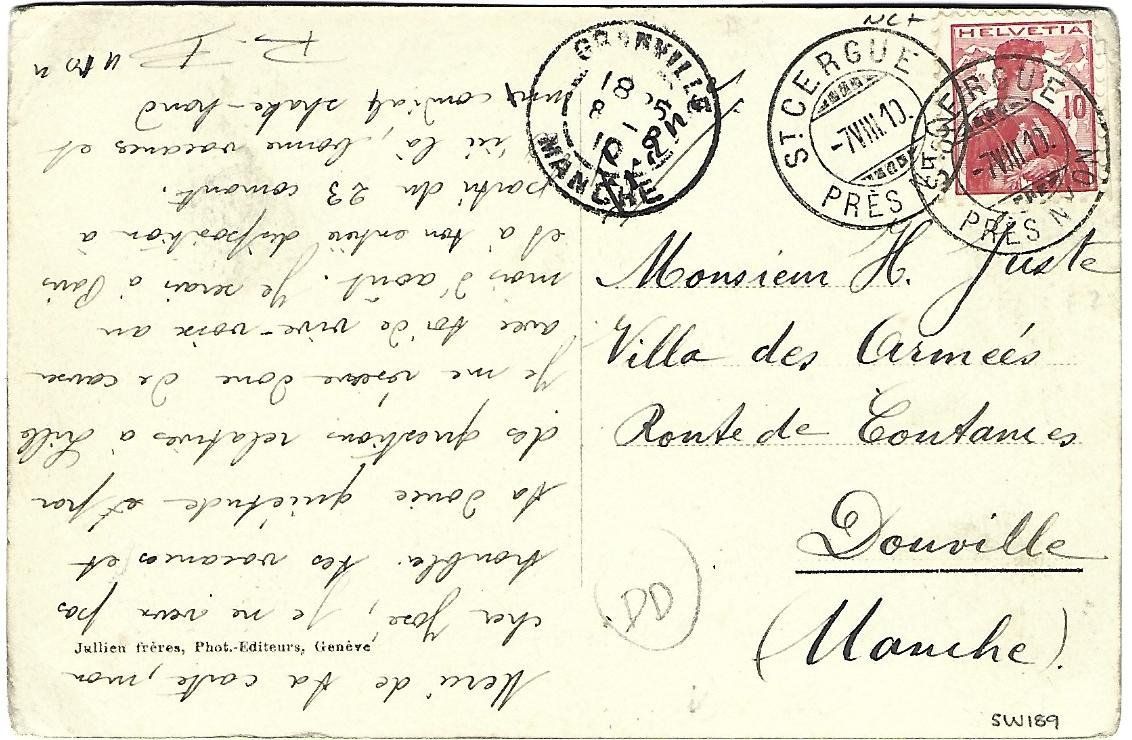 Merci de ta carte, mon
cher José, je ne veux pas
troubler tes vacances et
ta douce quiétude et par
des questions relatives à Lille
Je me réserve donc de causer
avec toi de vive-voix au
mois d'août. Je serai à Paris
et à ton entière disposition à
partir du 23 courant.
D'ici là, bonne vacances et
cordialy shake-hand
GRANVILLE
18
8
10
MANCHE
ST CERGUE
-7 VIII 10.
PRÈS NYON
ST CERGUE
-7 VIII 10.
PRÈS NYON
HELVETIA
10
Monsieur H. Juste
Villa des Armeés
Route de Coutances
Donville
(Manche).
Jullien frères, Phot.-Editeurs, Genève
DD
SW189